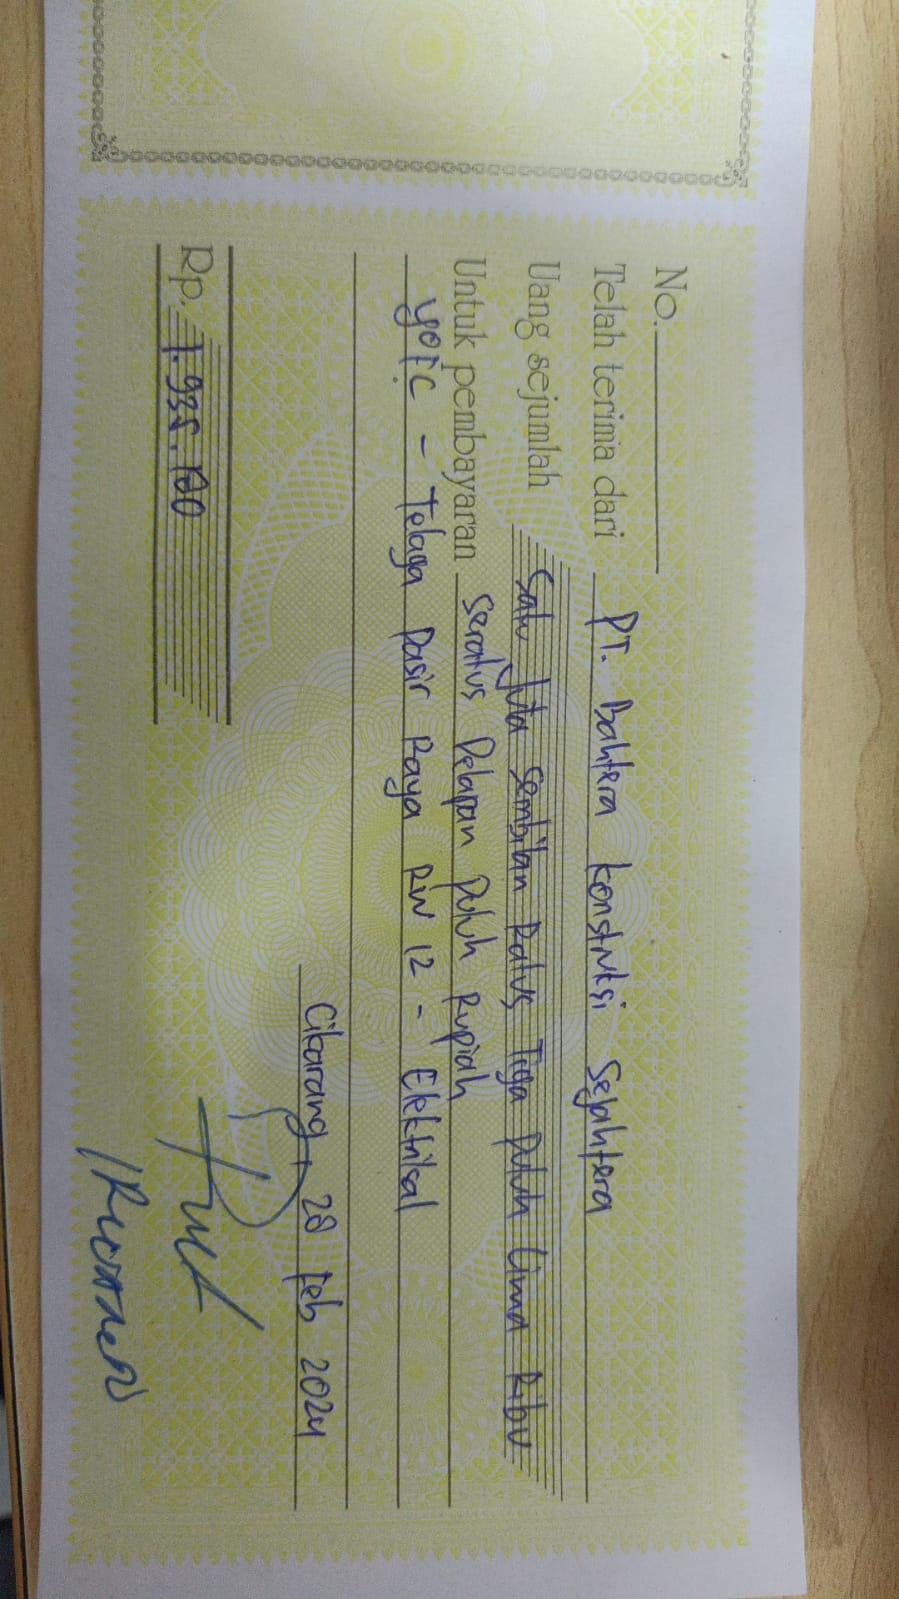 No.
Telah terima dari PT. Bahtera Konstruksi Sejahtera
Uang sejumlah Satu Juta Sembilan Ratus Tiga Puluh Lima Ribu
Untuk pembayaran Seratus Delapan Puluh Rupiah
- Telaga Pasir Raya RW 12 - Elektrikal
Cikarang, 28 Feb 2024
Rp. 1.935.180